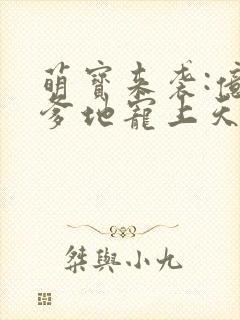 萌寶來袭:億
爹地寵上天
桀與小九